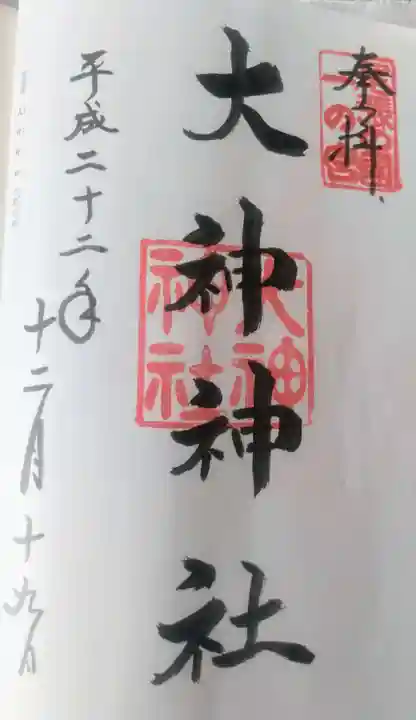 奉拝
尾張国
一の宮
大神神社
大神
神社
平成二十二年
十二月十九日